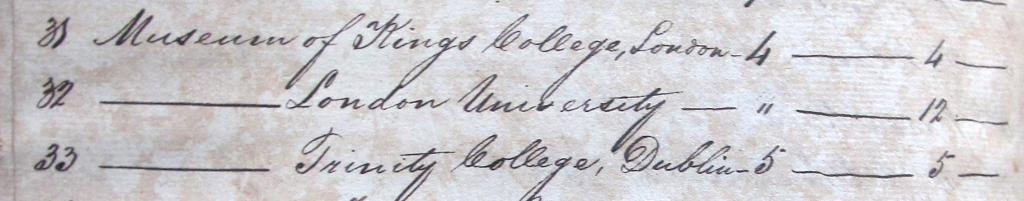 31 Museum of Kings College, London - 4 — 4 —
32 — London University — " — 12 —
33 — Trinity College, Dublin - 5 — 5 —